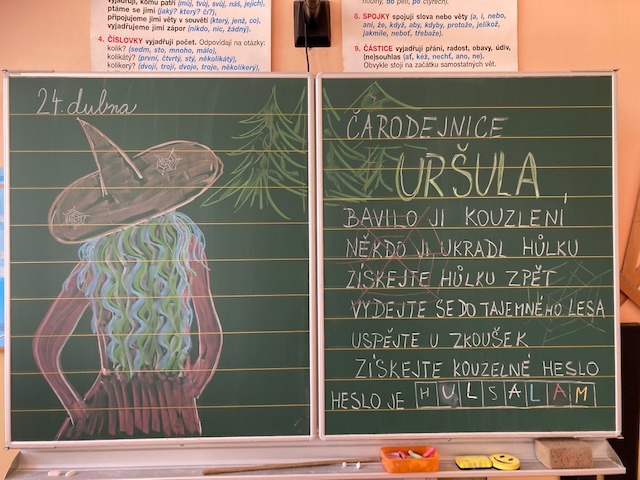 vyjadřují, komu patří (můj, tvůj, svůj, náš, jejich),
ptáme se jimi (jaký? který? čí?),
připojujeme jimi věty v souvětí (který, jenž, co),
vyjadřujeme jimi zápor (nikdo, nic, žádný).
4. ČÍSLOVKY vyjadřují počet. Odpovídají na otázky:
kolik? (sedm, sto, mnoho, málo),
kolikátý? (první, čtvrtý, stý, několikátý),
kolikerý? (dvojí, trojí, dvoje, troje, několikerý),
8. SPOJKY spojují slova nebo věty (a, i, nebo,
ani, že, když, aby, kdyby, protože, jelikož,
jakmile, neboť, třebaže).
9. ČÁSTICE vyjadřují přání, radost, obavy, údiv,
(ne)souhlas (ať, kéž, nechť, ano, ne).
Obvykle stojí na začátku samostatných vět.
24. dubna
ČARODEJNICE
URŠULA
BAVILO JI KOUZLENÍ
NĚKDO JI UKRADL HŮLKU
ZÍSKEJTE HŮLKU ZPĚT
VYDEJTE SE DO TAJEMNÉHO LESA
USPĚJTE U ZKOUŠEK
ZÍSKEJTE KOUZELNÉ HESLO
HESLO JE HULSALAM